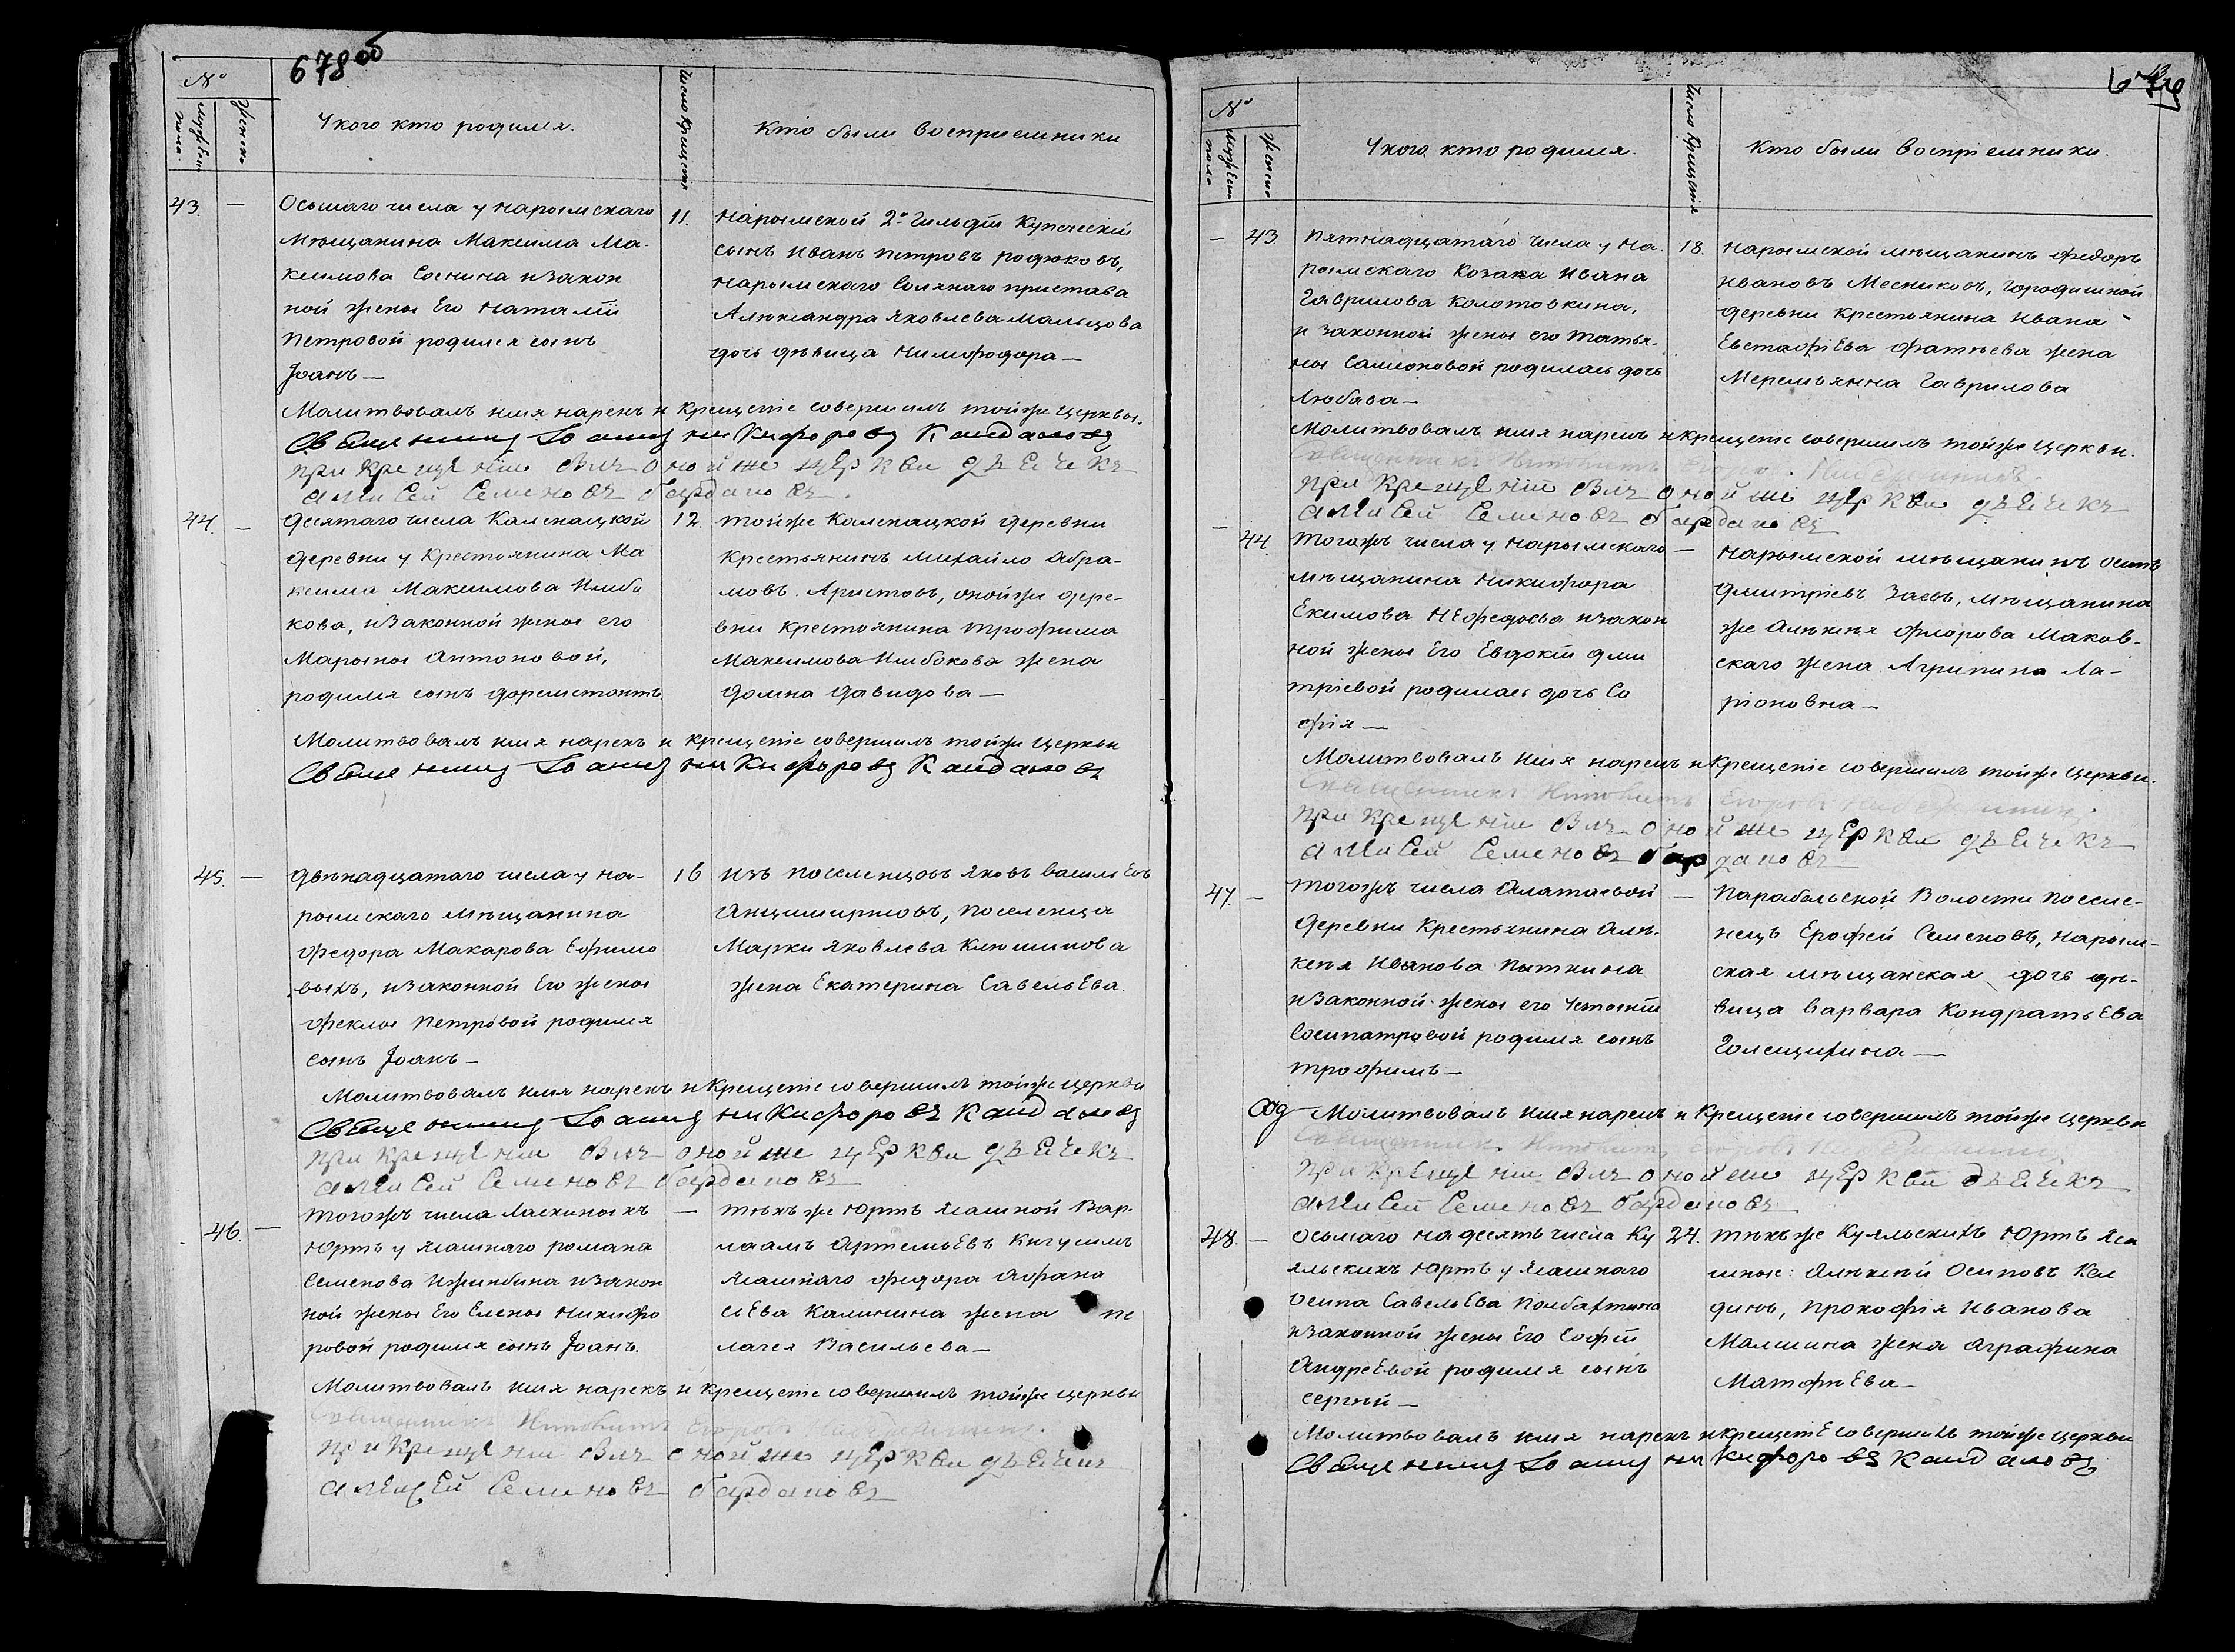 678об
№
Мужеска
пола.
Женска
У кого кто родился.
Число Крещенія
Кто были восприемники
43. —
Осьмаго числа у Нарымскаго
Мѣщанина Максима Ма-
ксимова Соснина изакон
ной жены Его Наталіи
Петровой родился сынъ
Іоанъ —
11.
Нарымской 2й Гильдіи Купеческій
сынъ Иванъ Петровъ Родюковъ,
Нарымскаго Солянаго пристава
Алѣксандра Яковлева Мальцова
дочь дѣвица Нимфодора —
Молитвовалъ имя нарекъ и Крещеніе совершилъ тойже Церквы.
Священникъ Іоаннъ Никифоровъ Кайдаловъ
При Крещеніи былъ онойже церкви дьячекъ
Алисей Семеновъ Бардаковъ.
44. —
Десятаго числа Каменацкой
деревни у Крестьянина Ма
ксима Максимова Имба
кова, изаконной жены его
Марыны Антоновой,
родился сынъ Ѳереистонтъ
12.
тойже Каменацкой деревни
Крестьянинъ Михайло Абра-
мовъ. Аристовъ, онойже дере-
вни Крестьянина Трофима
Максимова Имбокова жена
Домна Давидова —
Молитвовалъ имя нарекъ и Крещеніе совершилъ тойже Церкви
Священникъ Іоаннъ Никифоровъ Кайдаловъ
45. —
Двѣнадцатаго числа у На-
рымскаго Мѣщанина
Федора Макарова Ефимо
выхъ, изаконной Его жены
Феклы Петровой родился
сынъ Іоанъ —
16
Изъ поселенцовъ Яковъ Васильевъ
поселенца
Марки Яковлева Клюшикова
жена Екатерина Савельева.
Молитвовалъ имя нарекъ и Крещеніе совершилъ тойже Церкви
Священникъ Іоаннъ Никифоровъ Кайдаловъ
При Крещеніи былъ онойже церкви дьячекъ
Алисей Семеновъ Бардаковъ
46. —
Тогожъ числа Ласкиныхъ
Юртъ у Ясашнаго Романа
Семенова Ижинбина изакон
ной жены Его Елены Никифо
ровой родился сынъ Іоанъ.
—
Тѣхъ же Юртъ Ясашной Вар-
лаамъ Артемьевъ Кигусимъ
Ясашнаго Федора Афана
сьева Калинина жена Пе
лагея Васильева —
Молитвовалъ имя нарекъ и Крещеніе совершилъ тойже Церкви
Священникъ Инокентъ Егоровъ
При Крещеніи былъ онойже церкви дьячекъ
Алисей Семеновъ Бардаковъ
679
№
Мужеска
пола
Женска
У кого кто родился.
Число Крещенія
Кто были воспріемники.
— 43.
Пятнадцатаго числа у На-
рымскаго Козака Ивана
Гаврилова Колотовкина,
и законной жены его Татья-
ны Самсоновой родилась дочь
Любава —
18.
Нарымской мѣщанинъ Федоръ
Ивановъ Месниковъ, Городишной
деревни Крестьянина Ивана
Евстафіева Фатѣева жена
Меремьянна Гаврилова
Молитвовалъ имя нарекъ и Крещеніе совершилъ тойже Церкви.
Священникъ Инокентъ Егоровъ
При Крещеніи былъ онойже церкви дьячекъ
Алисей Семеновъ Бардаковъ
— 44.
Тогожъ числа у Нарымскаго
мѣщанина Никифора
Екимова Нефедьева изакон
ной жены Его Евдокіи Дми
тріевой родилась дочь Со
фія —
—
Нарымской мѣщанинъ Осипъ
Дмитріевъ Заевъ, мѣщанина
же Алѣксѣя Флорова Маков-
скаго жена Агрипина Ла-
ріоновна —
Молитвовалъ имя нарекъ и Крещеніе совершилъ тойже Церкви.
Священникъ Инокентъ Егоровъ
При Крещеніи былъ онойже церкви дьячекъ
Алисей Семеновъ Бардаковъ
47. —
Тогожъ числа Алатаевой
Деревни Крестьянина Алѣ-
ксѣя Иванова Пыткина
изаконной жены его Устиніи
Сосипатровой родился сынъ
Трофимъ —
—
Парабельской Волости поселе-
нецъ Ерофей Семеновъ, Нарым-
ская мѣщанская дочь дѣ-
вица Варвара Кондратьева
Голещихина —
Молитвовалъ имя нарекъ и Крещеніе совершилъ тойже Церкви
Священникъ Инокентъ Егоровъ
При Крещеніи былъ онойже церкви дьячекъ
Алисей Семеновъ Бардаковъ
48. —
Осьмаго надесять числа Ку
яльскихъ Юртъ у Ясашнаго
Осипа Савельева Помбахтина
изаконной жены Его Софіи
Андреевой родился сынъ
Сергий —
24.
Тѣхъже Куяльскихъ Юртъ Яса
шные: Алѣксѣй Осиповъ Кел
динъ, Прокофія Иванова
Малшина жена Аграфина
Матфѣева —
Молитвовалъ имя нарекъ и Крещеніе совершилъ тойже Церкви
Священникъ Іоаннъ Никифоровъ Кайдаловъ